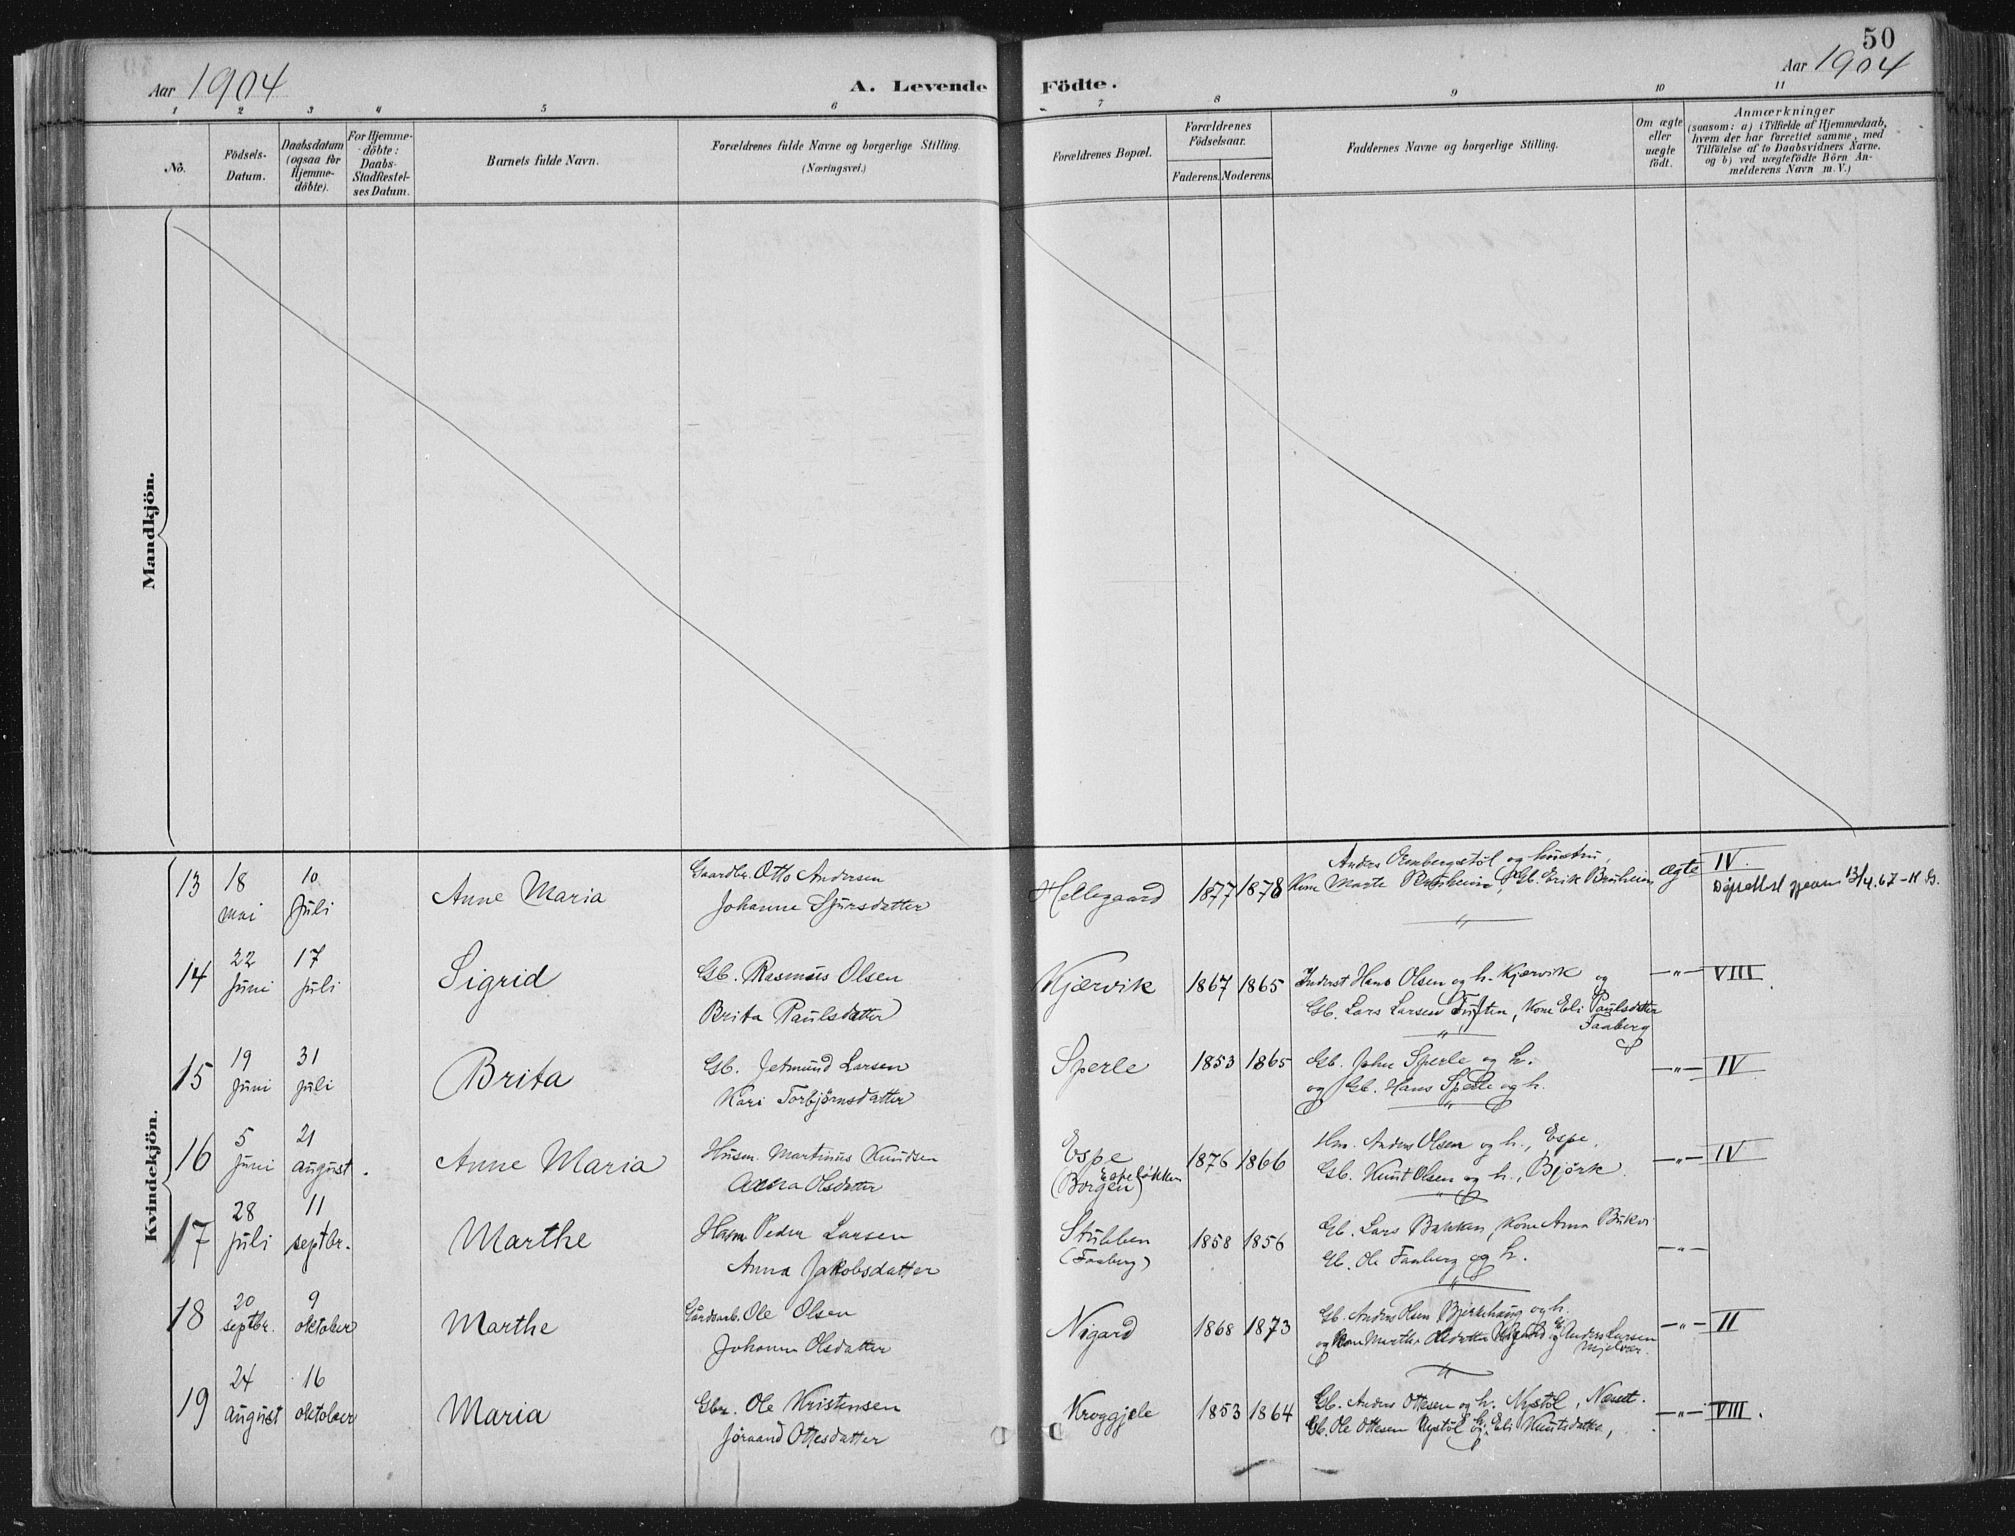 50
Aar 1904
A. Levende Födte.
Aar 1904
1 2 3 4 5 6 7 8 9 10 11
No.
Födsels-
Datum.
Daabsdatum
(ogsaa for
Hjemme-
döbte).
For Hjemme-
döbte:
Daabs-
Stadfæstel-
ses Datum.
Barnets fulde Navn.
Forældrenes fulde Navne og borgerlige Stilling.
(Næringsvei.)
Forældrenes Bopæl.
Forældrenes
Födselsaar.
Faderens. Moderens.
Faddernes Navne og borgerlige Stilling.
Om ægte
eller
uægte
født.
Anmærkninger
(saasom: a) i Tilfælde af Hjemmedaab,
hvem der har forrettet samme, med
Tilföielse af to Daabsvidners Navne.
og b) ved uægtefödte Börn An-
melderens Navn m. V.)
Mandkjön.
Kvindekjön.
13
18
mai
10
Juli
Anne Maria
Gaardbr. Otto Andersen
Johanne Sjursdatter
Hellegaard
1877 1878
Anders Ormbergstøl og hustru,
Kone Marte Bruheim, Gb. Erik Bruheim
ægte
IV.
13/4.67
14
22
Juni
17
Juli
Sigrid
Gb. Rasmus Olsen
Brita Paulsdatter
Kjærvik
1867 1865
Inderst Hans Olsen og h. Kjærvik og
Gb. Lars Larsen Tuften, Kone Eli Paulsdatter
Faaberg
—"—
VIII
15
19
Juni
31
Juli
Brita
Gb. Jetmund Larsen
Kari Torbjørnsdatter
Sperle
1853 1865
Gb. John Sperle og h.
og Gb. Hans Sperle og h.
—"—
IV
16
5
Juni
21
august.
Anne Maria
Husm. Martinus Knudsen
Anna Olsdatter
Espe
Espeløkken
(Borgen)
1876 1866
Hm. Anders Olsen og h., Espe.
Gb. Knut Olsen og h., Bjørk.
—"—
IV
17
28
Juli
11
septbr.
Marthe
Husm Peder Larsen
Anna Jakobsdatter
Stubben
(Faaberg)
1858 1856
Gb. Lars Bakken, Kone Anna Bukvi
Gb. Ole Faaberg og h.
—"—
18
20
septbr.
9
oktober
Marthe
Gårdmb. Ole Olsen
Johanne Olsdatter
Nigard
1868 1873
Gb. Anders Olsen Bjerkehaug og h.
og Kone Marthe Olsdatter Nigard og Anders Larsen
Mjelvær.
—"—
II
19
24
august
16
oktober
Maria
Gbr. Ole Kristensen
Jøraand Ottesdatter
Kroggjele
1853 1864
Gb. Anders Ottesen og h. Nystøl, Næset.
Gb. Ole Ottesen Nystøl og Eli Knutsdatter,
—"—
VIII.